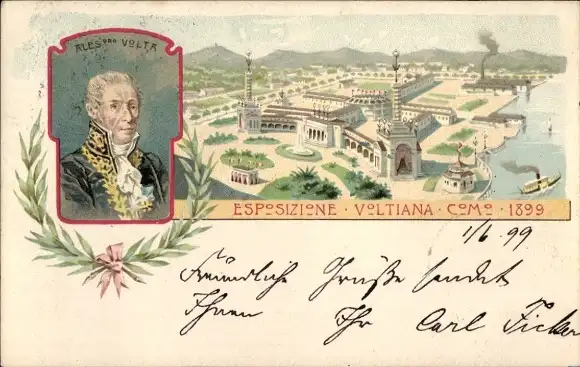 ALESDRO VOLTA
ESPOSIZIONE · VOLTIANA · COMO · 1899
1/6 99
Freundliche Grüße sendet
Ihnen Ihr Carl